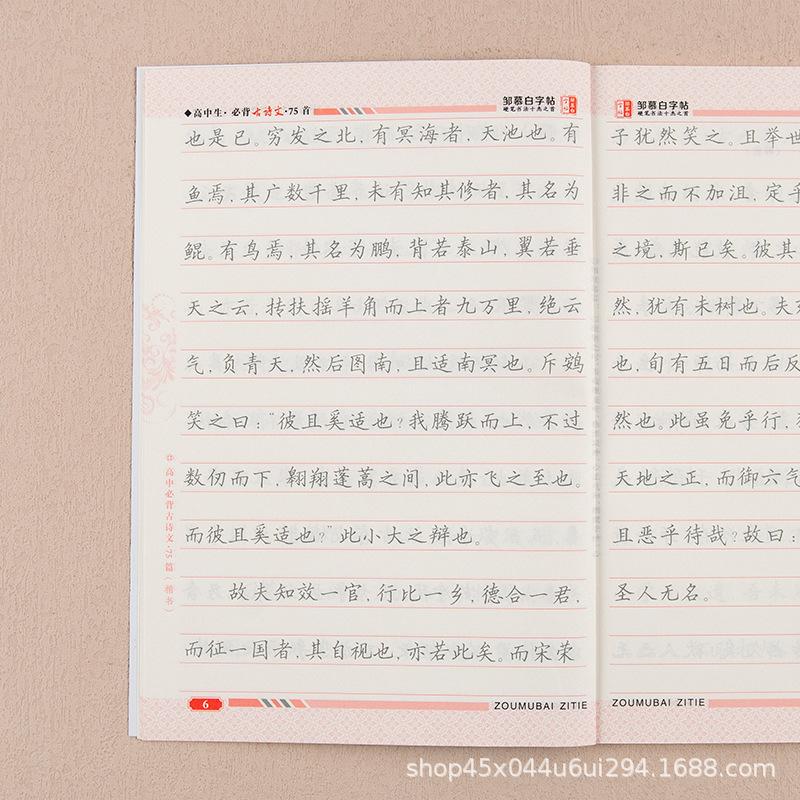 ◆高中生·必背古诗文·75首
邹慕白字帖
硬笔书法十杰之首
也是已。穷发之北,有冥海者,天池也。有
鱼焉,其广数千里,未有知其修者,其名为
鲲。有鸟焉,其名为鹏,背若泰山,翼若垂
天之云,抟扶摇羊角而上者九万里,绝云
气,负青天,然后图南,且适南冥也。斥鴳
笑之曰:“彼且奚适也?我腾跃而上,不过
数仞而下,翱翔蓬蒿之间,此亦飞之至也。
而彼且奚适也?”此小大之辩也。
故夫知效一官,行比一乡,德合一君,
而征一国者,其自视也,亦若此矣。而宋荣
高中必背古诗文·75篇(楷书)
6
ZOUMUBAI ZITIE
邹慕白字帖
硬笔书法十杰之首
子犹然笑之。且举世
非之而不加沮,定乎
之境,斯已矣。彼其
然,犹有未树也。夫
也,旬有五日而后反
然也。此虽免乎行,
天地之正,而御六气
且恶乎待哉?故曰:
圣人无名。
ZOUMUBAI ZITIE
shop45x044u6ui294.1688.com